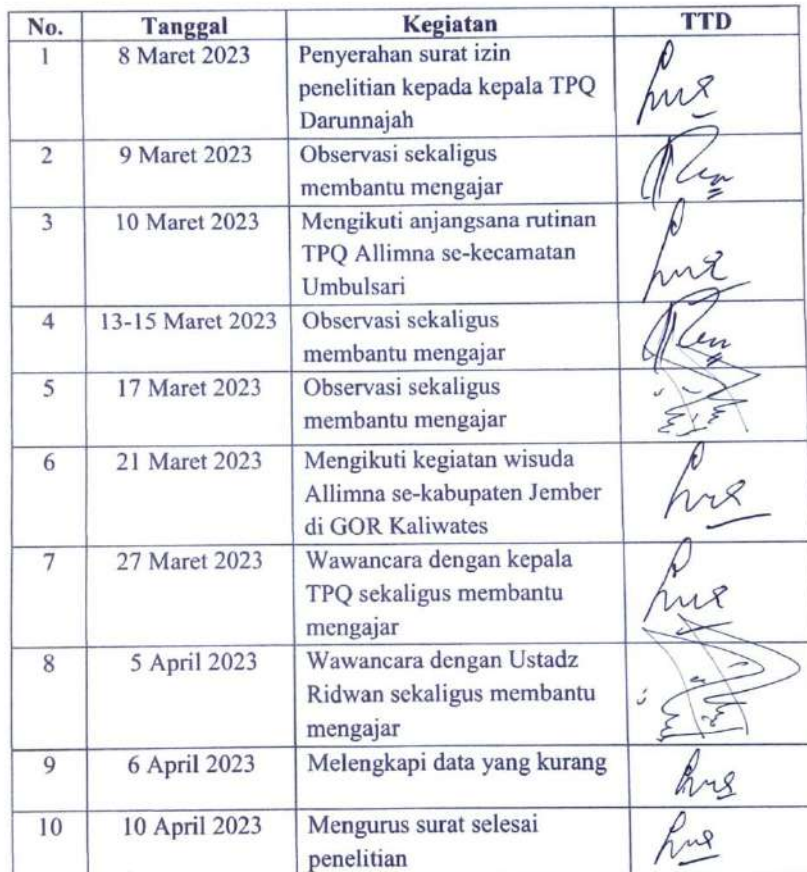 No. Tanggal Kegiatan TTD
1 8 Maret 2023 Penyerahan surat izin
penelitian kepada kepala TPQ
Darunnajah
2 9 Maret 2023 Observasi sekaligus
membantu mengajar
3 10 Maret 2023 Mengikuti anjangsana rutinan
TPQ Allimna se-kecamatan
Umbulsari
4 13-15 Maret 2023 Observasi sekaligus
membantu mengajar
5 17 Maret 2023 Observasi sekaligus
membantu mengajar
6 21 Maret 2023 Mengikuti kegiatan wisuda
Allimna se-kabupaten Jember
di GOR Kaliwates
7 27 Maret 2023 Wawancara dengan kepala
TPQ sekaligus membantu
mengajar
8 5 April 2023 Wawancara dengan Ustadz
Ridwan sekaligus membantu
mengajar
9 6 April 2023 Melengkapi data yang kurang
10 10 April 2023 Mengurus surat selesai
penelitian